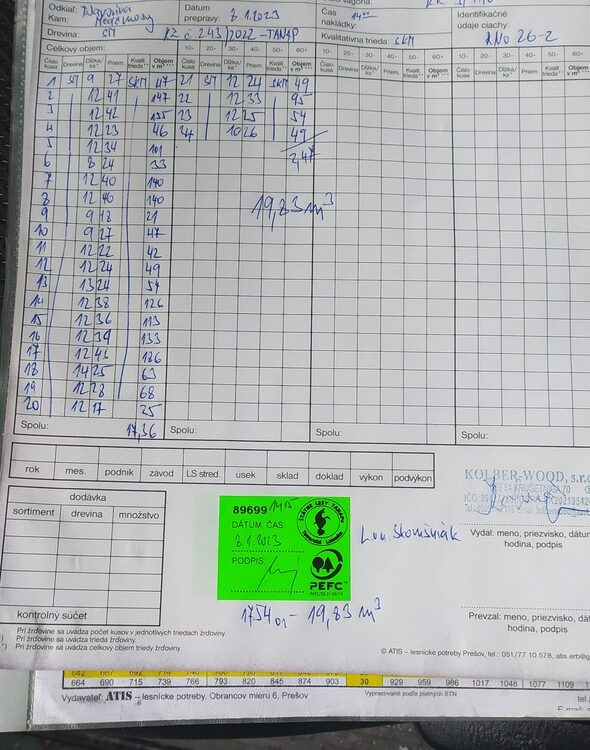 Odkiaľ: Dátum Čas Identifikačné
Kam: prepravy: 8.1.2023 nakládky: 14 údaje ciachy:
Drevina: SM RZ č 243/2022-TANAP Kvalitatívna trieda: SKM RNO 26-2
Celkový objem: 10- 20- 30- 40- 50- 60+ 10- 20- 30- 40- 50- 60+ 10- 20- 30- 40- 50- 60+
Číslo kusa Drevina Dĺžka/ks* Priem. Kvalit. trieda** Objem v m³*** Číslo kusa Drevina Dĺžka/ks* Priem. Kvalit. trieda** Objem v m³*** Číslo kusa Drevina Dĺžka/ks* Priem. Kvalit. trieda** Objem v m³*** Číslo kusa Drevina Dĺžka/ks* Priem. Kvalit. trieda** Objem v m³***
1 SM 9 27 SKM 47 21 SM 12 24 SKM 49
2 12 41 147 22 12 33 95
3 12 42 155 23 12 25 54
4 12 23 46 24 10 26 49
5 12 34 101 2,47
6 8 24 33
7 12 40 140
8 12 40 140 19,83 m³
9 9 18 21
10 9 27 47
11 12 22 42
12 12 24 49
13 13 24 54
14 12 38 126
15 12 36 113
16 12 39 133
17 12 46 186
18 14 25 63
19 12 28 68
20 12 17 25
Spolu: 17,36 Spolu: Spolu: Spolu:
rok mes. podnik závod LS stred. úsek sklad doklad výkon podvýkon
KOLBER-WOOD, s.r.o
dodávka
sortiment drevina množstvo
kontrolný súčet
89699 1415
DÁTUM ČAS:
8.1.2023
PODPIS
ŠTÁTNE LESY TANAPU
Tatranská Lomnica
PEFC
Vydal: meno, priezvisko, dátum
hodina, podpis
1754 01 - 19,83 m³
Prevzal: meno, priezvisko, dátum
hodina, podpis
Pri žrďovine sa uvádza počet kusov v jednotlivých triedach žrďoviny.
*) Pri žrďovine sa uvádza trieda žrďoviny.
**) Pri žrďovine sa uvádza celkový objem triedy žrďoviny.
© ATIS - lesnícke potreby Prešov, tel.: 051/77 10 578, atis.erb@
664 690 715 739 766 793 820 845 874 903 30 929 959 986 1017 1048 1077 1109
Vydavateľ: ATIS – lesnícke potreby, Obrancov mieru 6, Prešov Vypracované podľa platných STN tel.